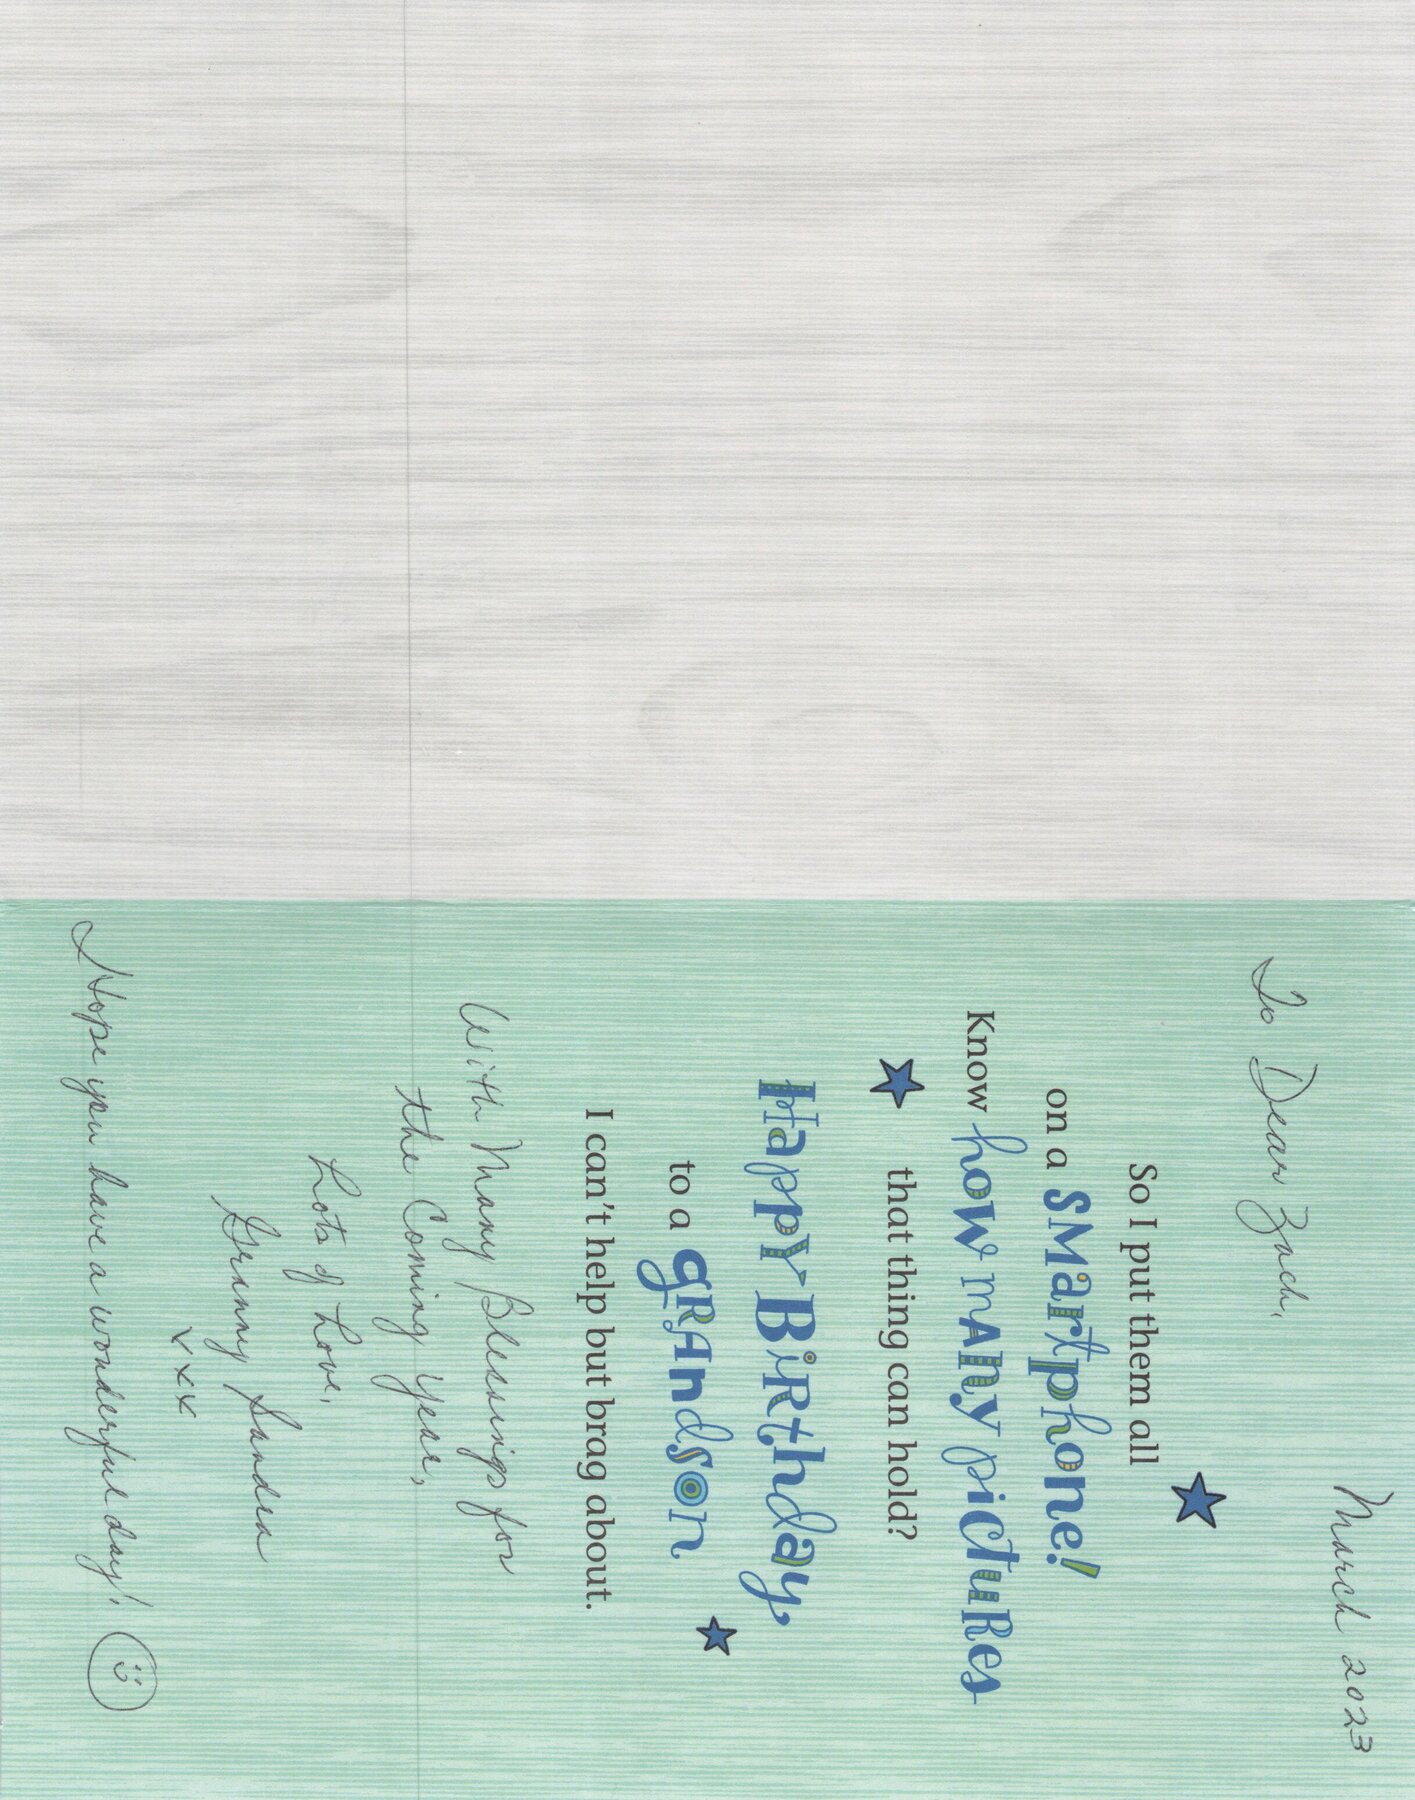 March 2023
To Dear Zach,
So I put them all
on a smartphone!
Know how many pictures
that thing can hold?
Happy Birthday,
to a grandson
I can't help but brag about.
With Many Blessings for
the Coming Year,
Lots of Love,
Granny Sandra
xxx
Hope you have a wonderful day!